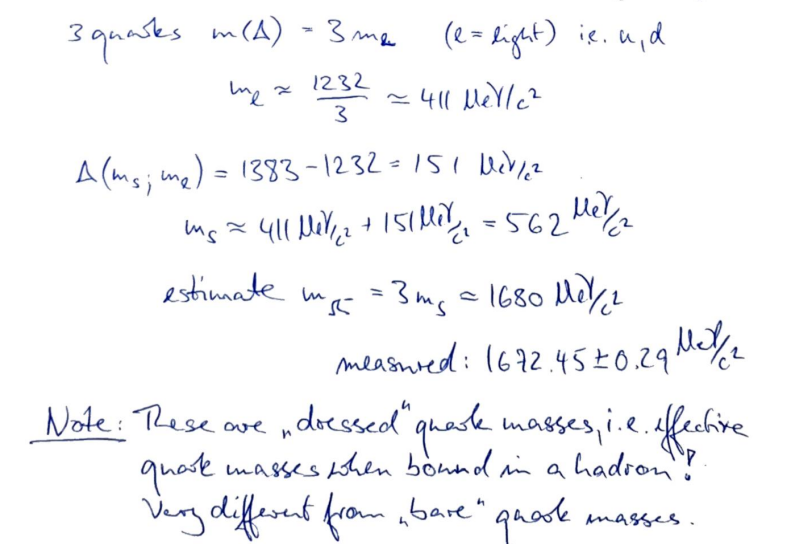 3 quarks m(Δ) = 3mₗ (ℓ = light) i.e. u,d
mₗ ≈ 1232/3 ≃ 411 MeV/c²
Δ(mₛ; mₗ) = 1383 - 1232 = 151 MeV/c²
mₛ ≈ 411 MeV/c² + 151 MeV/c² = 562 MeV/c²
estimate m_Ω⁻ = 3mₛ ≃ 1680 MeV/c²
measured: 1672.45 ± 0.29 MeV/c²
Note: These are „dressed“ quark masses, i.e. effective
quark masses when bound in a hadron!
Very different from „bare“ quark masses.